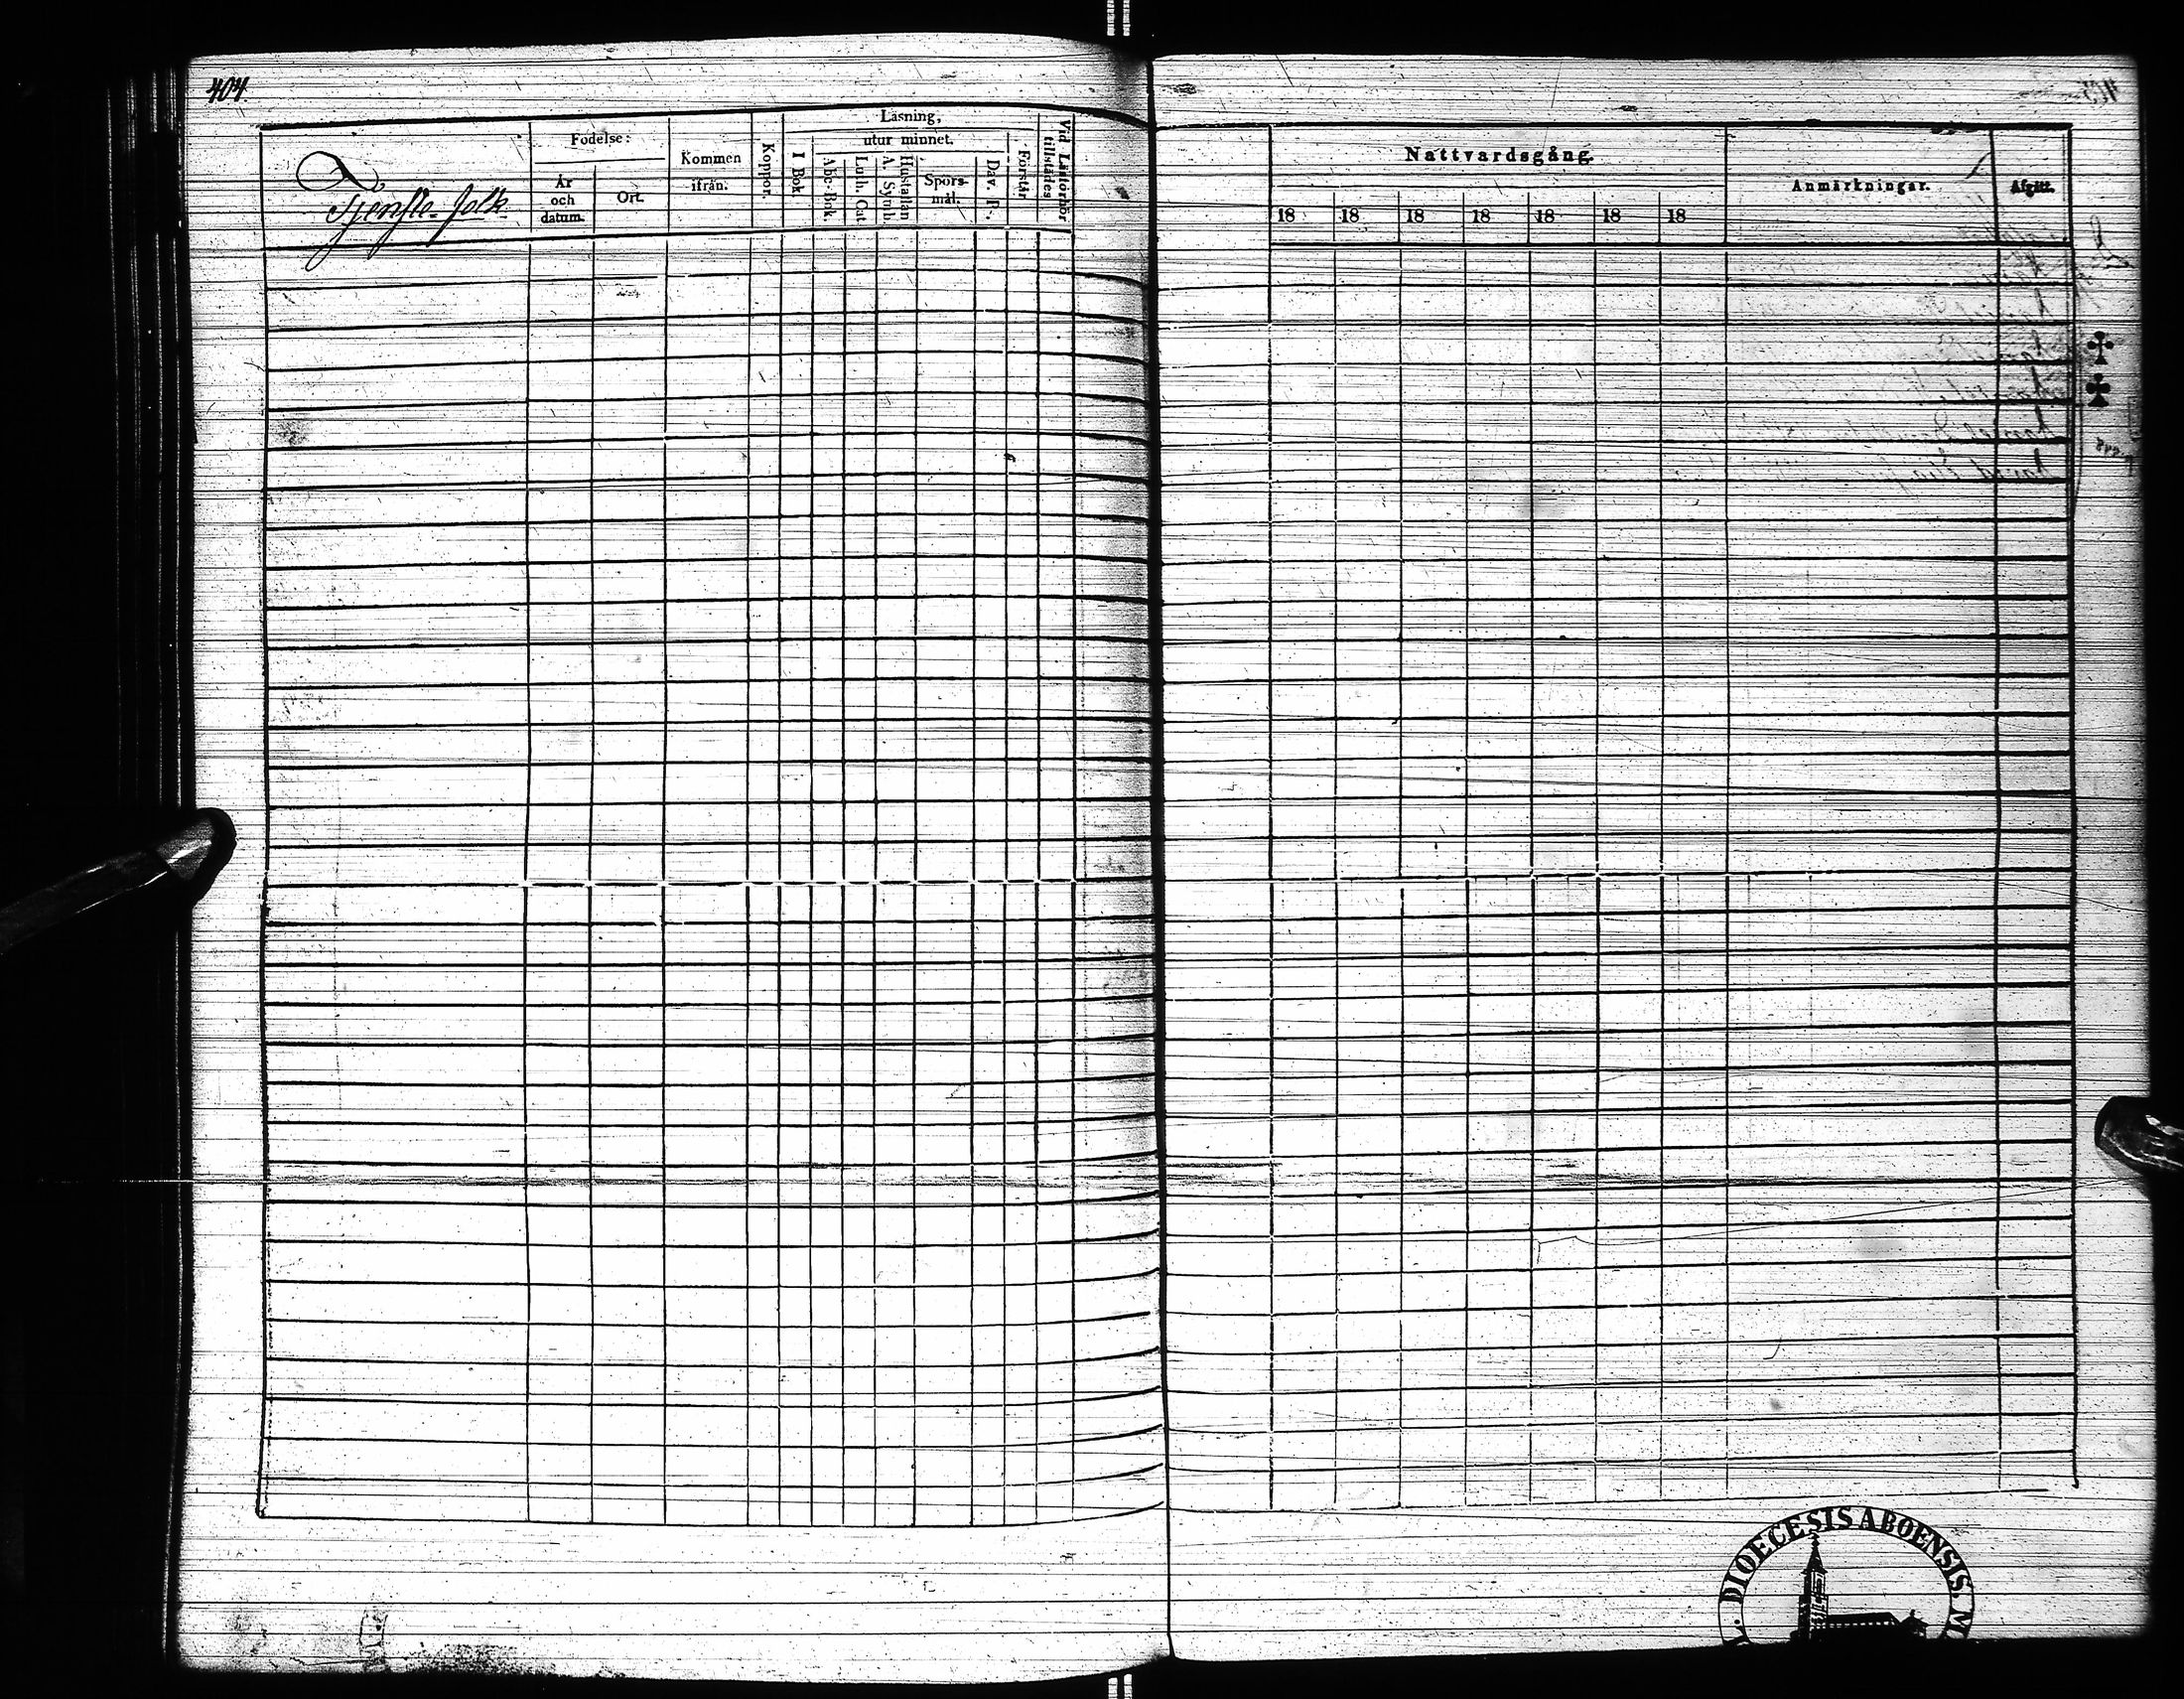 404.
Tjenste-folk
Födelse:
År och datum.
Ort.
Kommen ifrån.
Koppor.
Läsning,
I Bok
utur minnet.
Abc-Bok.
Luth. Cat.
A. Symb. Hustaflan
Spörs-mål.
Dav. P.
Förstår
Vid Läsförhör tillstädes
Nattvardsgång.
18 18 18 18 18 18 18
Anmärkningar.
Afgått.
DIOECESIS ABOENSIS. M